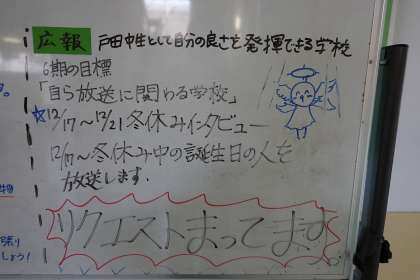 広報 戸田中生として自分の良さを発揮できる学校
6期の目標
「自ら放送に関わる学校」
☆12/17~12/21 冬休みインタビュー
12/17~冬休み中の誕生日の人を
放送します.
リクエストまってます。
物
しょう!